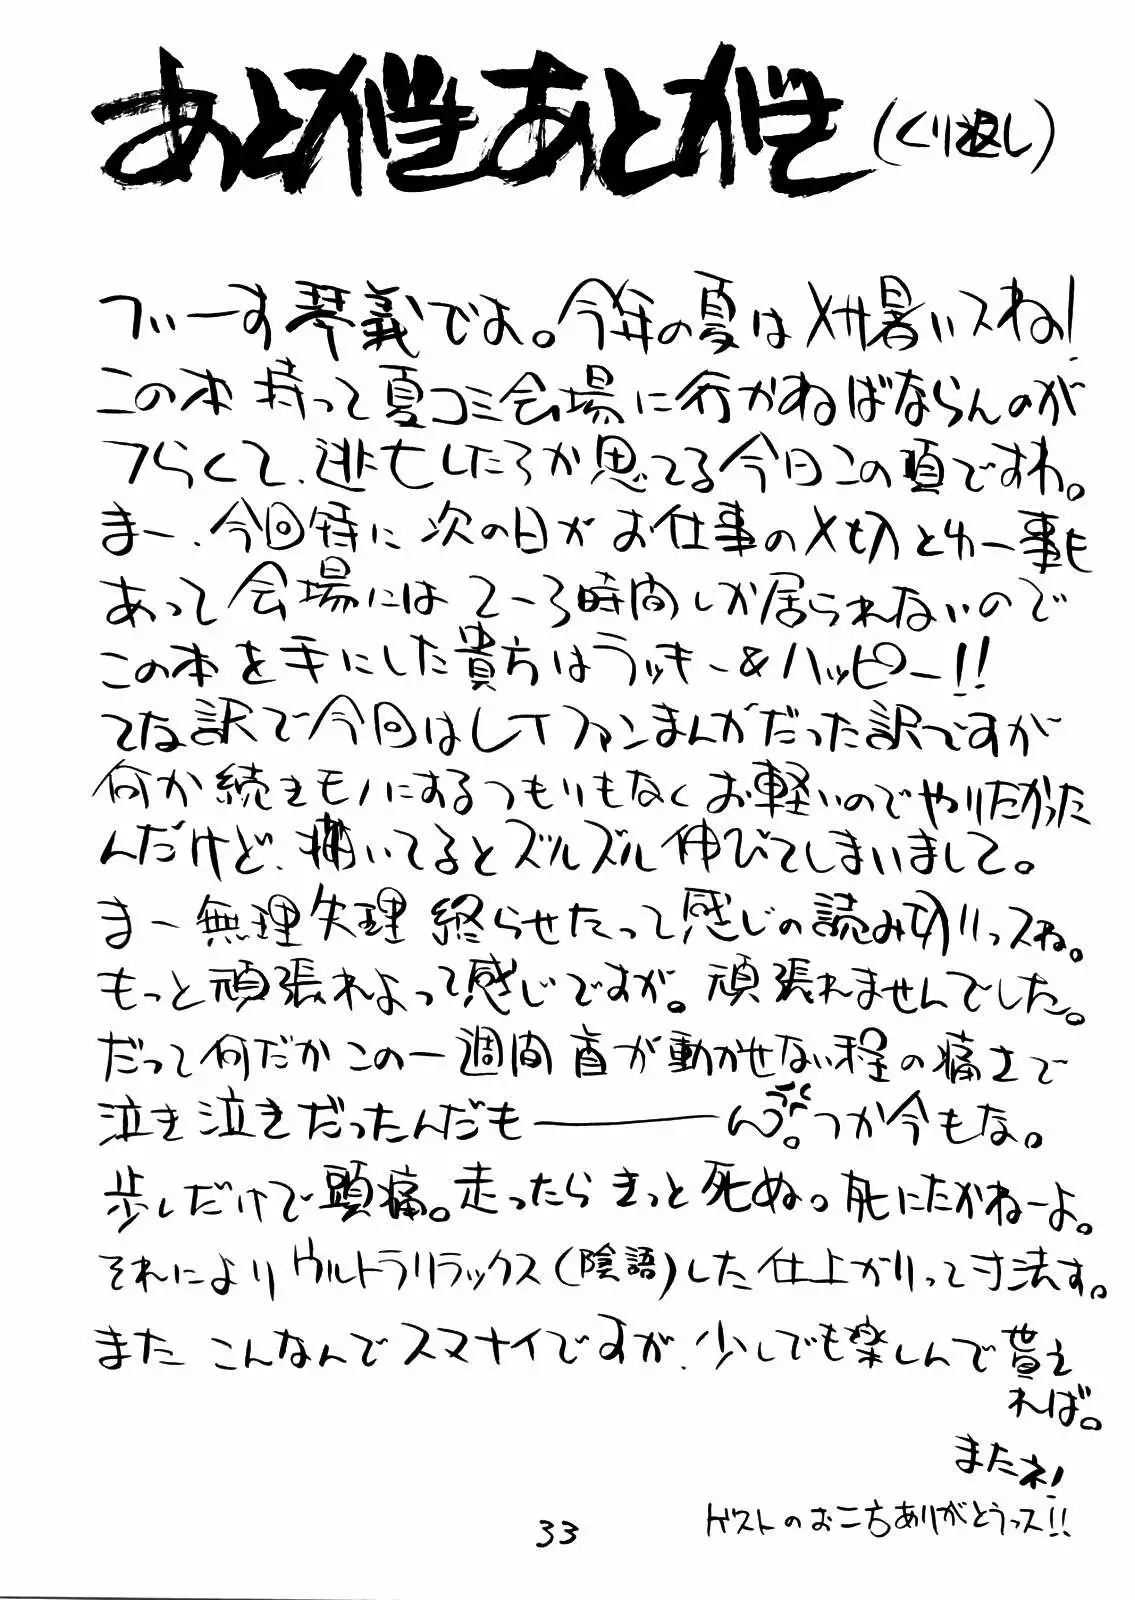 あとがきあとがき(くり返し)
フィーす琴義でよ。今年の夏はメサ暑いスね!
この本持って夏コミ会場に行かねばならんのが
つらくて、逃亡したろか思てる今日この頃ですわ。
まー、今回特に次の日がお仕事の〆切とゆー事も
あって会場には2〜3時間しか居られないので
この本を手にした貴方はラッキー&ハッピー!!
てな訳で今回はLTファンまんがだった訳ですが
何か続きモノにするつもりもなくお軽いのでやりたかった
んだけど、描いてるとズルズル伸びてしまいまして。
まー無理矢理終らせたって感じの読み切りっスね。
もっと頑張れよって感じですが。頑張れませんでした。
だって何だかこの一週間首が動かせない程の痛さで
泣き泣きだったんだも―――ん。つか今もな。
歩くだけで頭痛。走ったらきっと死ぬ。死にたかねーよ。
それによりウルトラリラックス(陰語)した仕上がりって寸法す。
またこんなんでスマナイですが、少しでも楽しんで貰え
れば。
またネ!
ゲストのお二方ありがとうっス!!
33